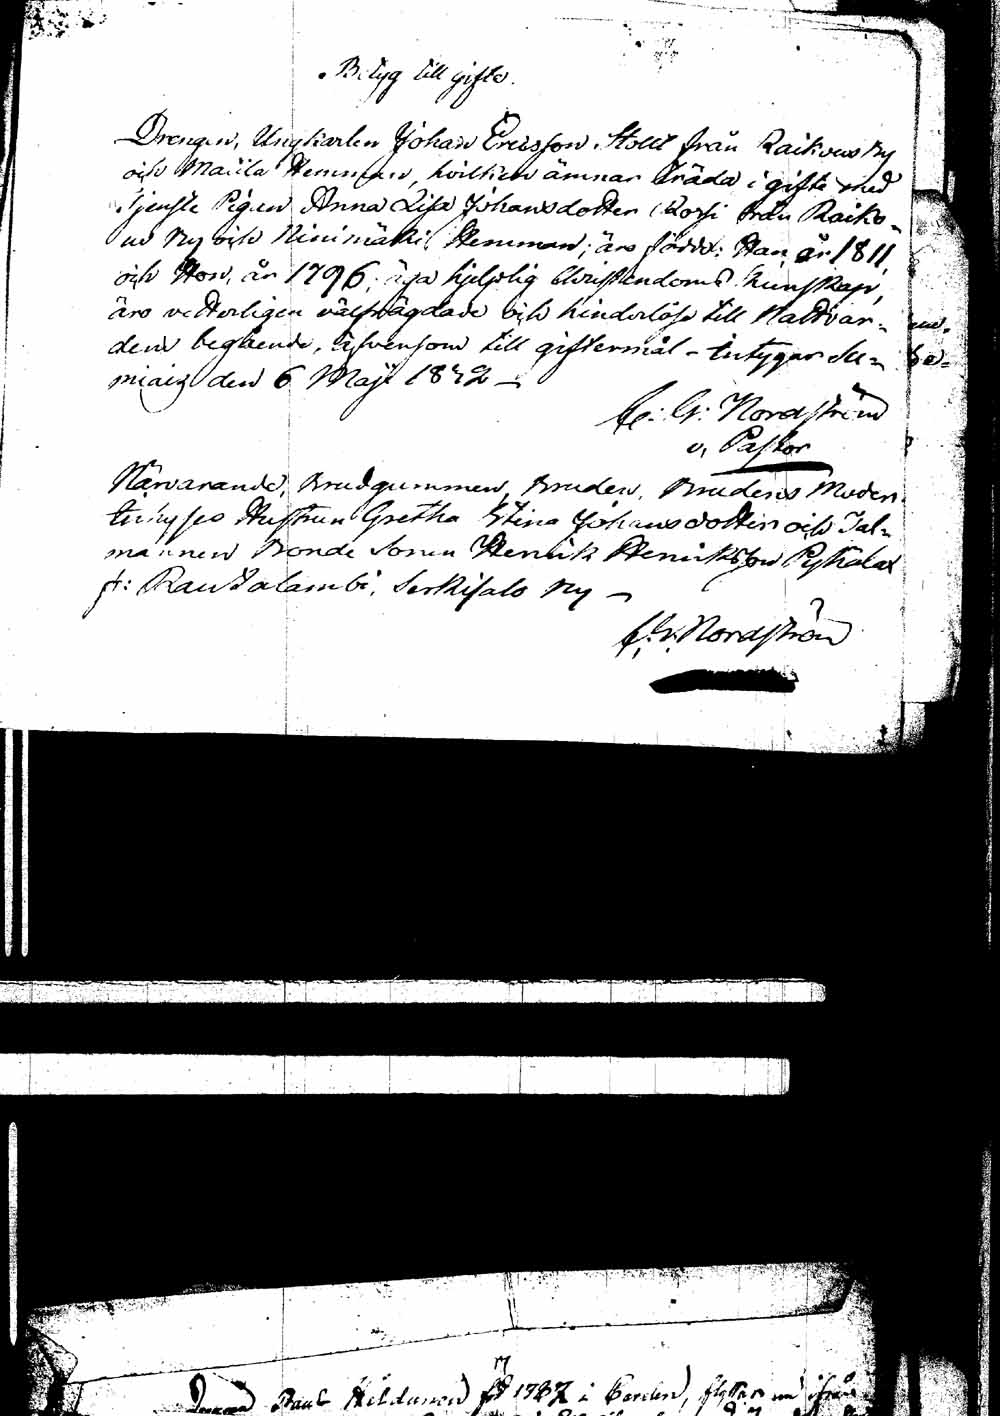 Betyg till gifte.
Drengen, Ungkarlen Johan Ericsson Stolt från Raikous By
och Maula Hemman, hvilken ämnar träda i gifte med
Tjenste Pigan Anna Lisa Johansdotter från Raiko-
us By och Ninimäki Hemman; äro födde: Han år 1811,
och Hon, år 1796; äga hjelplig Christendoms kunskap,
äro vetterligen välfrägdade och hinderlöse till Nattvar-
dens begående, äfvensom till giftermål - intygar Su-
miais den 6 Maji 1842 -
C. G. Nordström
v. Pastor
Närvarande, Brudgummen, Bruden, Brudens Moders
Hustrun Gretha Stina Johansdotter och Tal-
mannen Bonde Sonen Henrik Henriksson
fr: Rautalambi, Serkisalo By -
C. G. Nordström
1787 i